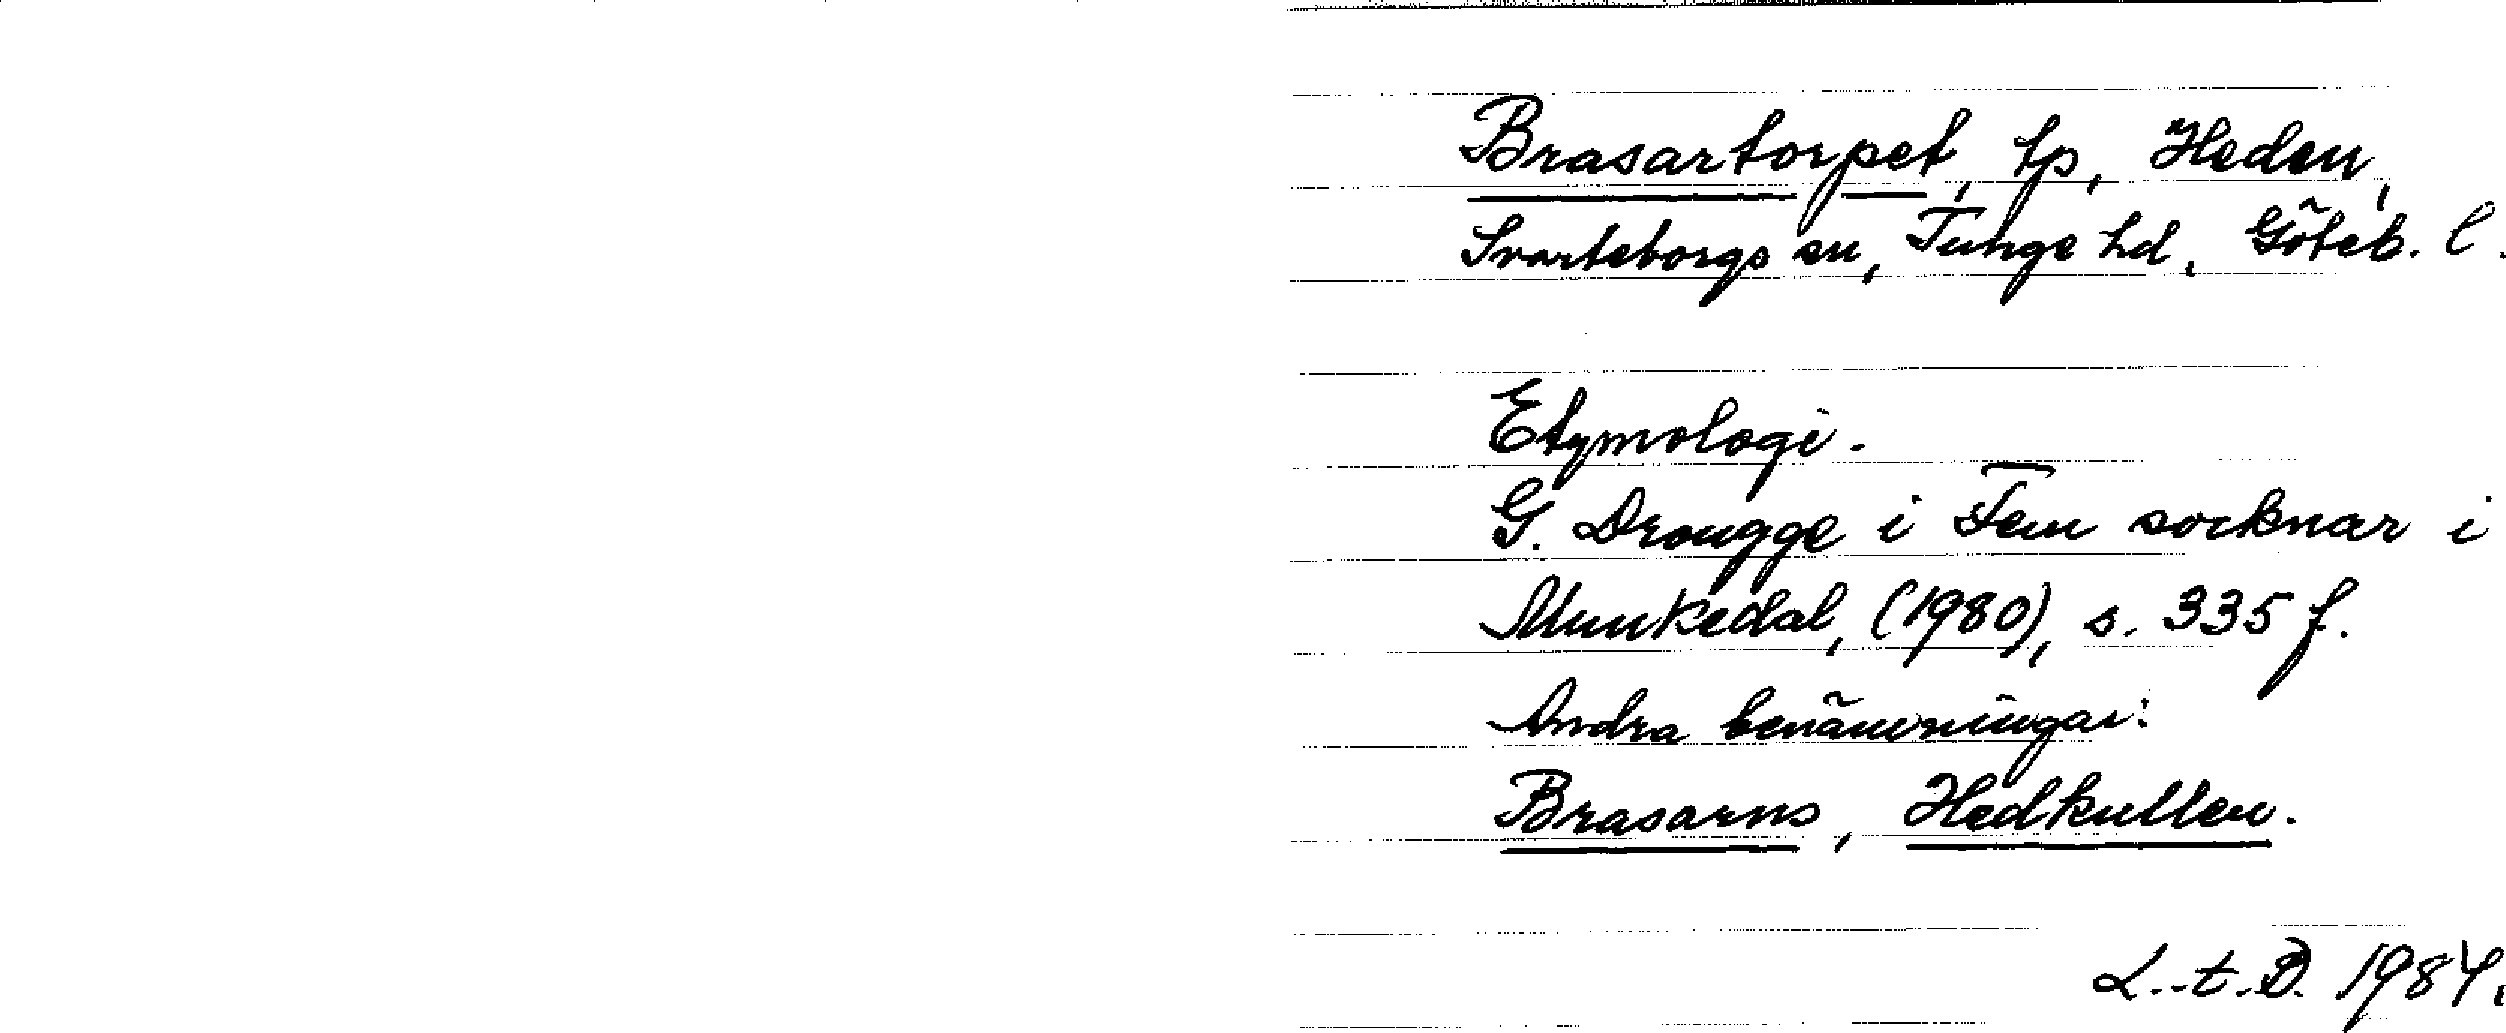 Brasartorpet, tp, Heden,
Svarteborgs sn, Tunge hd, Göteb. l.
Etymologi.
G. Drougge i Fem socknar i
Munkedal, (1980), s. 335 f.
Andra benämningar:
Brasarns, Hedkullen.
L.t.B. 1984.